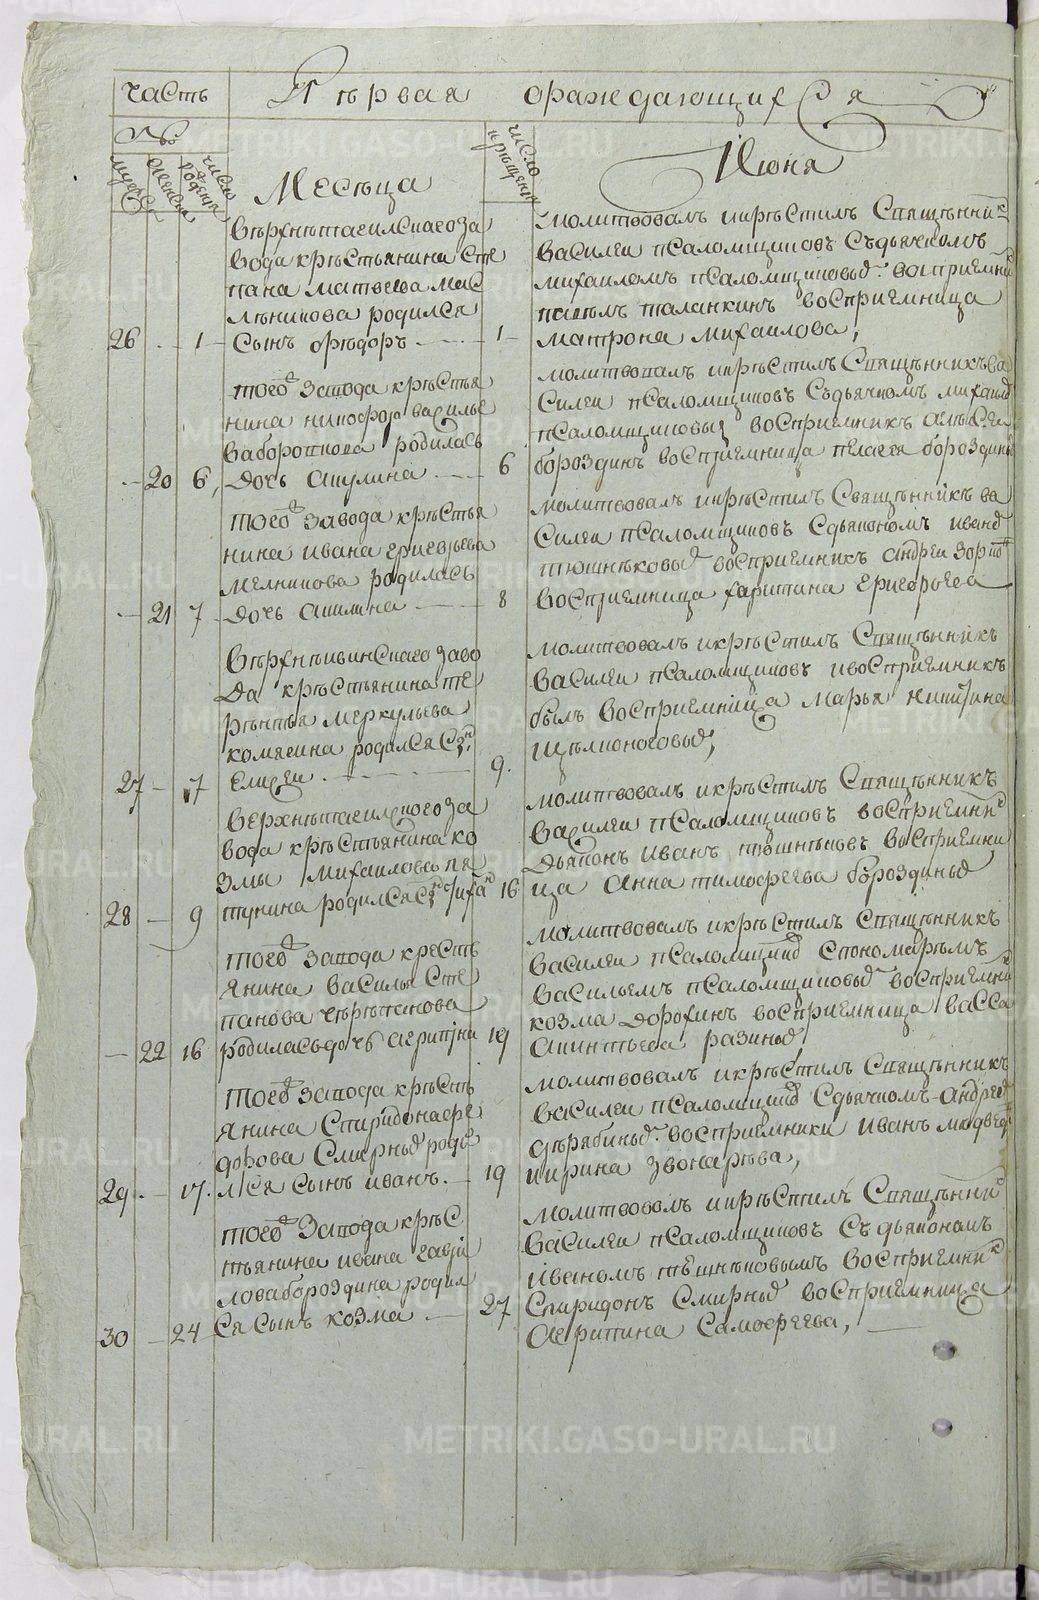 часть Пѣрвая ораждающихся
№
мужеска
женска
число рождения
Месеца
число крѣщения
Июня
Вѣрхнѣтагилскаго за
вода крѣстьянина Сте
пана Матвеева Мас
лѣникова родился
26 1 Сынъ Ѳѣдоръ 1
молитвовалъ икрѣстилъ Свящѣнник
Василеи псаломщиковъ Съдьячкомъ
михаиломъ псаломщиковы восприемник
павѣлъ таланкинъ восприемница
матрона михаилова,
того завода крѣстья
нина никофора василье
ва
родилась
20 6, дочь Акулина 6
молитвовалъ икрѣстилъ Свящѣнникъ ва
Силеи псаломщиковъ Съдьячкомъ михаил
псаломщиковы восприемникъ алѣксеи
бороздинъ восприемница пелагея бороздины
того завода крѣстья
нина ивана григорьева
мелникова родилась
21 7 дочь Акилина 8
молитвовалъ икрѣстилъ Свящѣнникъ ва
Силеи псаломщиковъ Сдьякономъ иваном
восприемникъ андреи
восприемница харитина григорьева
Вѣрхнѣивинскаго заво
да крѣстьянина те
рѣнтья меркульева
комягина родился Сын
27 7 Елисеи 9.
молитвовалъ икрѣстилъ Свящѣнникъ
василеи псаломщиковъ ивосприемникъ
былъ восприемница марья никитина
Верхнѣтагилского за
вода крѣстьянина ко
змы михаилова пя
тунина родился Сын 16
28 9
молитвовалъ икрѣстилъ Свящѣнникъ
василеи псаломщиковъ восприемник
дьяконъ иванъ тюшняковъ восприемни
ца Анна тимофеева бороздины
того завода кресть
янина василья Сте
панова черѣпанова
22 16 родиласьдочь агрипина 19
молитвовалъ икрѣстилъ Свящѣнникъ
василеи псаломщик Спономарѣмъ
васильемъ псаломщиковы восприемник
козма дорофинъ восприемница васса
разины
того завода крѣсть
янина Спиридонафе
дорова Смирны роди
29 17. лся Сынъ иванъ. 19
молитвовалъ икрѣстилъ Свящѣнникъ
василеи псаломщик Сдьячкомъ андреем
дѣрябины восприемники иванъ медведев
иирина звонарѣва,
того завода крѣс
тьянина ивана гаври
ловабороздина родил
30 24 ся сынъ козма 27
молитвовалъ икрѣстилъ Свящѣнник
василеи псаломщиковъ Съдьякономъ
иваномъ тѣшнѣковымъ восприемник
Спиридонъ Смирны восприемница
Агрипина Самофеева,
METRIKI.GASO-URAL.RU